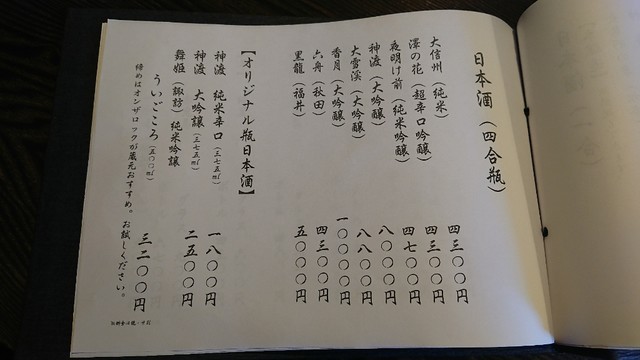 日本酒(四合瓶)
大信州(純米) 四三〇〇円
澤の花(超辛口吟醸) 四三〇〇円
夜明け前(純米吟醸) 四七〇〇円
神渡(大吟醸) 八〇〇〇円
大雪渓(大吟醸) 八八〇〇円
香月(大吟醸) 一〇〇〇〇円
六舟(秋田) 四三〇〇円
黒龍(福井) 五〇〇〇円
【オリジナル瓶日本酒】
神渡 純米辛口(三七五ml) 一八〇〇円
神渡 大吟醸(三七五ml) 二五〇〇円
舞姫 諏訪 純米吟醸
ういごころ(五〇〇ml) 三二〇〇円
締めはオンザロックが蔵元おすすめ。お試しください。